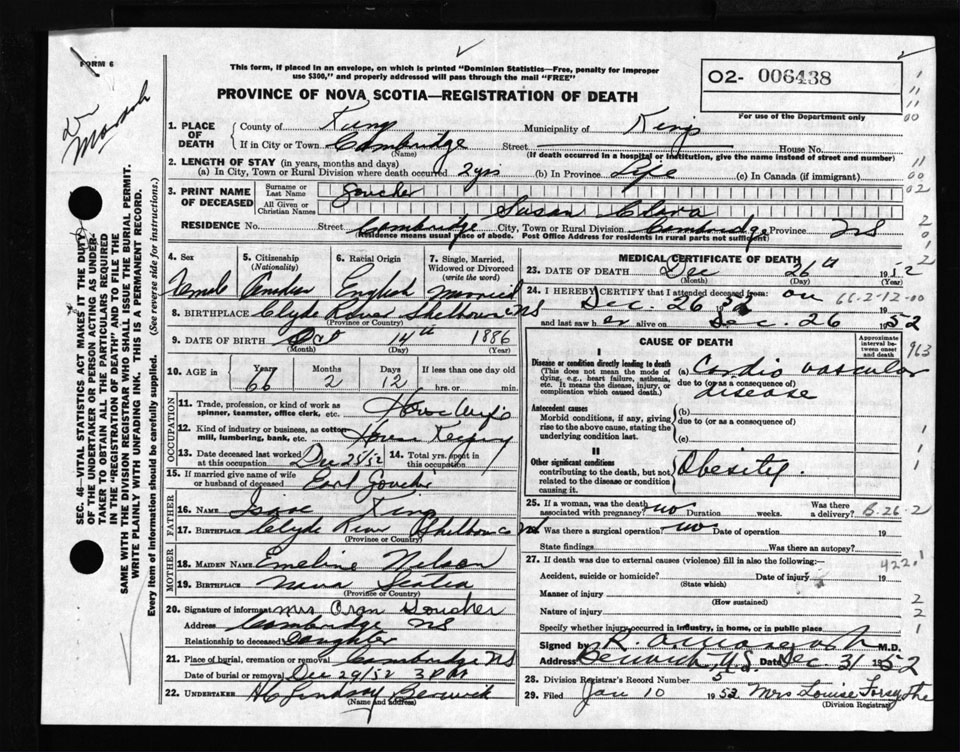 FORM 6
This form, if placed in an envelope, on which is printed "Dominion Statistics—Free, penalty for improper
use $300," and properly addressed will pass through the mail "FREE"
PROVINCE OF NOVA SCOTIA—REGISTRATION OF DEATH
O2- 006438
For use of the Department only
1. PLACE OF DEATH County of Kings Municipality of Kings
If in City or Town Cambridge Street House No.
(Name) (If death occurred in a hospital or institution, give the name instead of street and number)
2. LENGTH OF STAY (in years, months and days)
(a) In City, Town or Rural Division where death occurred 2 yrs (b) In Province Life (c) In Canada (if immigrant)
3. PRINT NAME OF DECEASED Surname or Last Name Goucher
All Given or Christian Names Susan Clara
RESIDENCE No. Street Cambridge City, Town or Rural Division Cambridge Province NS
(Residence means usual place of abode. Post Office Address for residents in rural parts not sufficient)
4. Sex Female
5. Citizenship (Nationality) Canadian
6. Racial Origin English
7. Single, Married, Widowed or Divorced (write the word) Married
8. BIRTHPLACE Clyde River Shelburne NS
(Province or Country)
9. DATE OF BIRTH Oct 14th 1886
(Month) (Day) (Year)
10. AGE in Years 66 Months 2 Days 12 If less than one day old hrs. or min.
OCCUPATION
11. Trade, profession, or kind of work as spinner, teamster, office clerk, etc. House Wife
12. Kind of industry or business, as cotton mill, lumbering, bank, etc. House Keeping
13. Date deceased last worked at this occupation Dec 25/52 14. Total yrs. spent in this occupation
15. If married give name of wife or husband of deceased Earl Goucher
FATHER
16. NAME Isaac King
17. BIRTHPLACE Clyde River Shelburne Co NS
(Province or Country)
MOTHER
18. MAIDEN NAME Emeline Nelson
19. BIRTHPLACE Nova Scotia
(Province or Country)
20. Signature of informant Mrs Oran Goucher
Address Cambridge NS
Relationship to deceased Daughter
21. Place of burial, cremation or removal Cambridge NS
Date of burial or removal Dec 29/52 3 PM
22. UNDERTAKER H C Lindsay Berwick
(Name and Address)
MEDICAL CERTIFICATE OF DEATH
23. DATE OF DEATH Dec 26th 1952
(Month) (Day) (Year)
24. I HEREBY CERTIFY that I attended deceased from: on
Dec. 26 19 52 66-2-12-00
and last saw her alive on Dec. 26 1952
CAUSE OF DEATH
Approximate interval between onset and death
963
I
Disease or condition directly leading to death
(This does not mean the mode of dying, e.g., heart failure, asthenia, etc. It means the disease, injury, or complication which caused death.)
(a) Cardio vascular
due to (or as a consequence of)
disease
Antecedent causes
Morbid conditions, if any, giving rise to the above cause, stating the underlying condition last.
(b)
due to (or as a consequence of)
(c)
II
Other significant conditions
contributing to the death, but not related to the disease or condition causing it.
Obesity.
25. If a woman, was the death associated with pregnancy? no Duration weeks. Was there a delivery? 6-26-2
26. Was there a surgical operation? no Date of operation 19
State findings Was there an autopsy?
27. If death was due to external causes (violence) fill in also the following:— 4221
Accident, suicide or homicide? Date of injury 19
(State which)
Manner of injury
(How sustained)
Nature of injury
Specify whether injury occurred in industry, in home, or in public place
Signed by M.D.
Address Berwick, N.S. Date Dec. 31 1952
28. Division Registrar's Record Number 5
29. Filed Jan 10 1953 Mrs Louise Forsythe
(Division Registrar)
SEC. 46—VITAL STATISTICS ACT MAKES IT THE DUTY
OF THE UNDERTAKER OR PERSON ACTING AS UNDER-
TAKER TO OBTAIN ALL THE PARTICULARS REQUIRED
IN THE "REGISTRATION OF DEATH" AND TO FILE THE
SAME WITH THE DIVISION REGISTRAR WHO SHALL ISSUE THE BURIAL PERMIT.
WRITE PLAINLY WITH UNFADING INK. THIS IS A PERMANENT RECORD.
Every item of information should be carefully supplied. (See reverse side for instructions.)